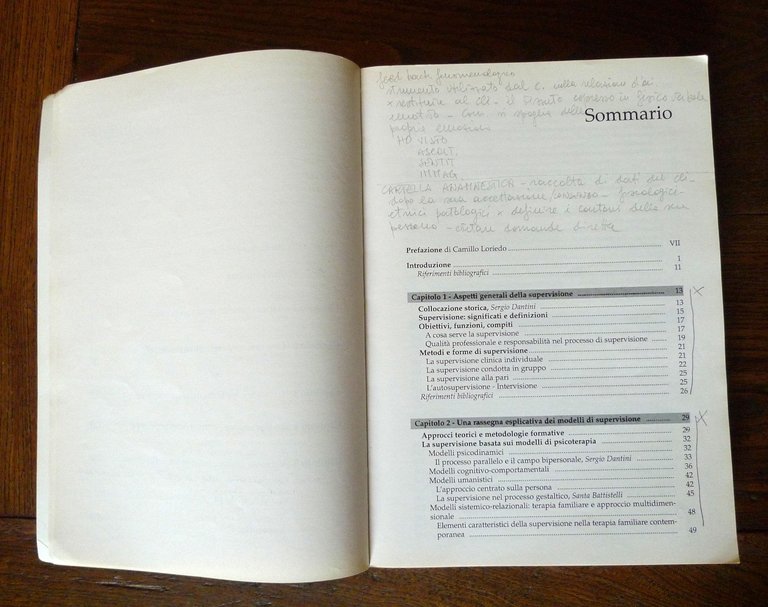 feed back fenomenologico
strumento utilizzato dal c. nella relazione d'ai
x restituire al cli. il vissuto espresso in fisico verbale
emotivo - Con si spoglia delle
proprie emozioni
HO VISTO
ASCOLT.
SENTIT
IMMAG.
Sommario
CARTELLA ANAMNESTICA - raccolta di dati del cli-
dopo la sua accettazione/consenso - fisiologici-
etnici patologici x definire i contorni della sua
persona - evitare domande dirette
Prefazione di Camillo Loriedo VII
Introduzione 1
Riferimenti bibliografici 11
Capitolo 1 - Aspetti generali della supervisione 13
Collocazione storica, Sergio Dantini 13
Supervisione: significati e definizioni 15
Obiettivi, funzioni, compiti 17
A cosa serve la supervisione 17
Qualità professionale e responsabilità nel processo di supervisione 19
Metodi e forme di supervisione 21
La supervisione clinica individuale 21
La supervisione condotta in gruppo 22
La supervisione alla pari 25
L'autosupervisione - Intervisione 25
Riferimenti bibliografici 26
Capitolo 2 - Una rassegna esplicativa dei modelli di supervisione 29
Approcci teorici e metodologie formative 29
La supervisione basata sui modelli di psicoterapia 32
Modelli psicodinamici 32
Il processo parallelo e il campo bipersonale, Sergio Dantini 33
Modelli cognitivo-comportamentali 36
Modelli umanistici 42
L'approccio centrato sulla persona 42
La supervisione nel processo gestaltico, Santa Battistelli 45
Modelli sistemico-relazionali: terapia familiare e approccio multidimen-
sionale 48
Elementi caratteristici della supervisione nella terapia familiare contem-
poranea 49